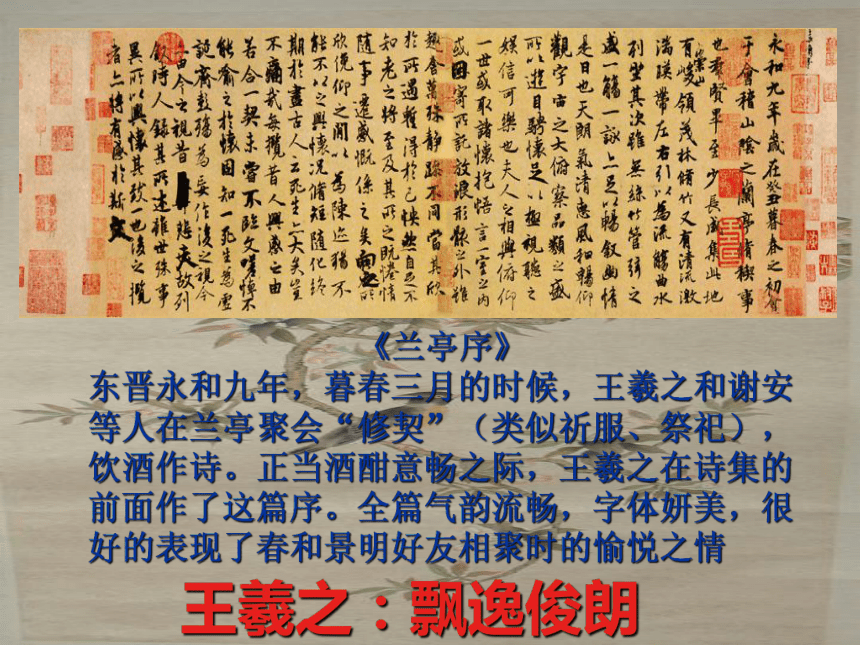 永和九年歲在癸丑暮春之初會
于會稽山陰之蘭亭脩禊事
也羣賢畢至少長咸集此地
有崇山峻領茂林脩竹又有清流激
湍暎帶左右引以為流觴曲水
列坐其次雖無絲竹管弦之
盛一觴一詠亦足以暢敘幽情
是日也天朗氣清惠風和暢仰
觀宇宙之大俯察品類之盛
所以遊目騁懷足以極視聽之
娛信可樂也夫人之相與俯仰
一世或取諸懷抱悟言一室之內
或因寄所託放浪形骸之外雖
趣舍萬殊靜躁不同當其欣
於所遇蹔得於己怏然自足不
知老之將至及其所之既惓情
隨事遷感慨係之矣向之所
欣俛仰之閒以為陳迹猶不
能不以之興懷況脩短隨化終
期於盡古人云死生亦大矣豈
不痛哉每攬昔人興感之由
若合一契未嘗不臨文嗟悼不
能喻之於懷固知一死生為虛
誕齊彭殤為妄作後之視今
亦由今之視昔悲夫故列
敘時人錄其所述雖世殊事
異所以興懷其致一也後之攬
者亦將有感於斯文
《兰亭序》
东晋永和九年，暮春三月的时候，王羲之和谢安
等人在兰亭聚会“修契”（类似祈服、祭祀），
饮酒作诗。正当酒酣意畅之际，王羲之在诗集的
前面作了这篇序。全篇气韵流畅，字体妍美，很
好的表现了春和景明好友相聚时的愉悦之情
王羲之：飘逸俊朗